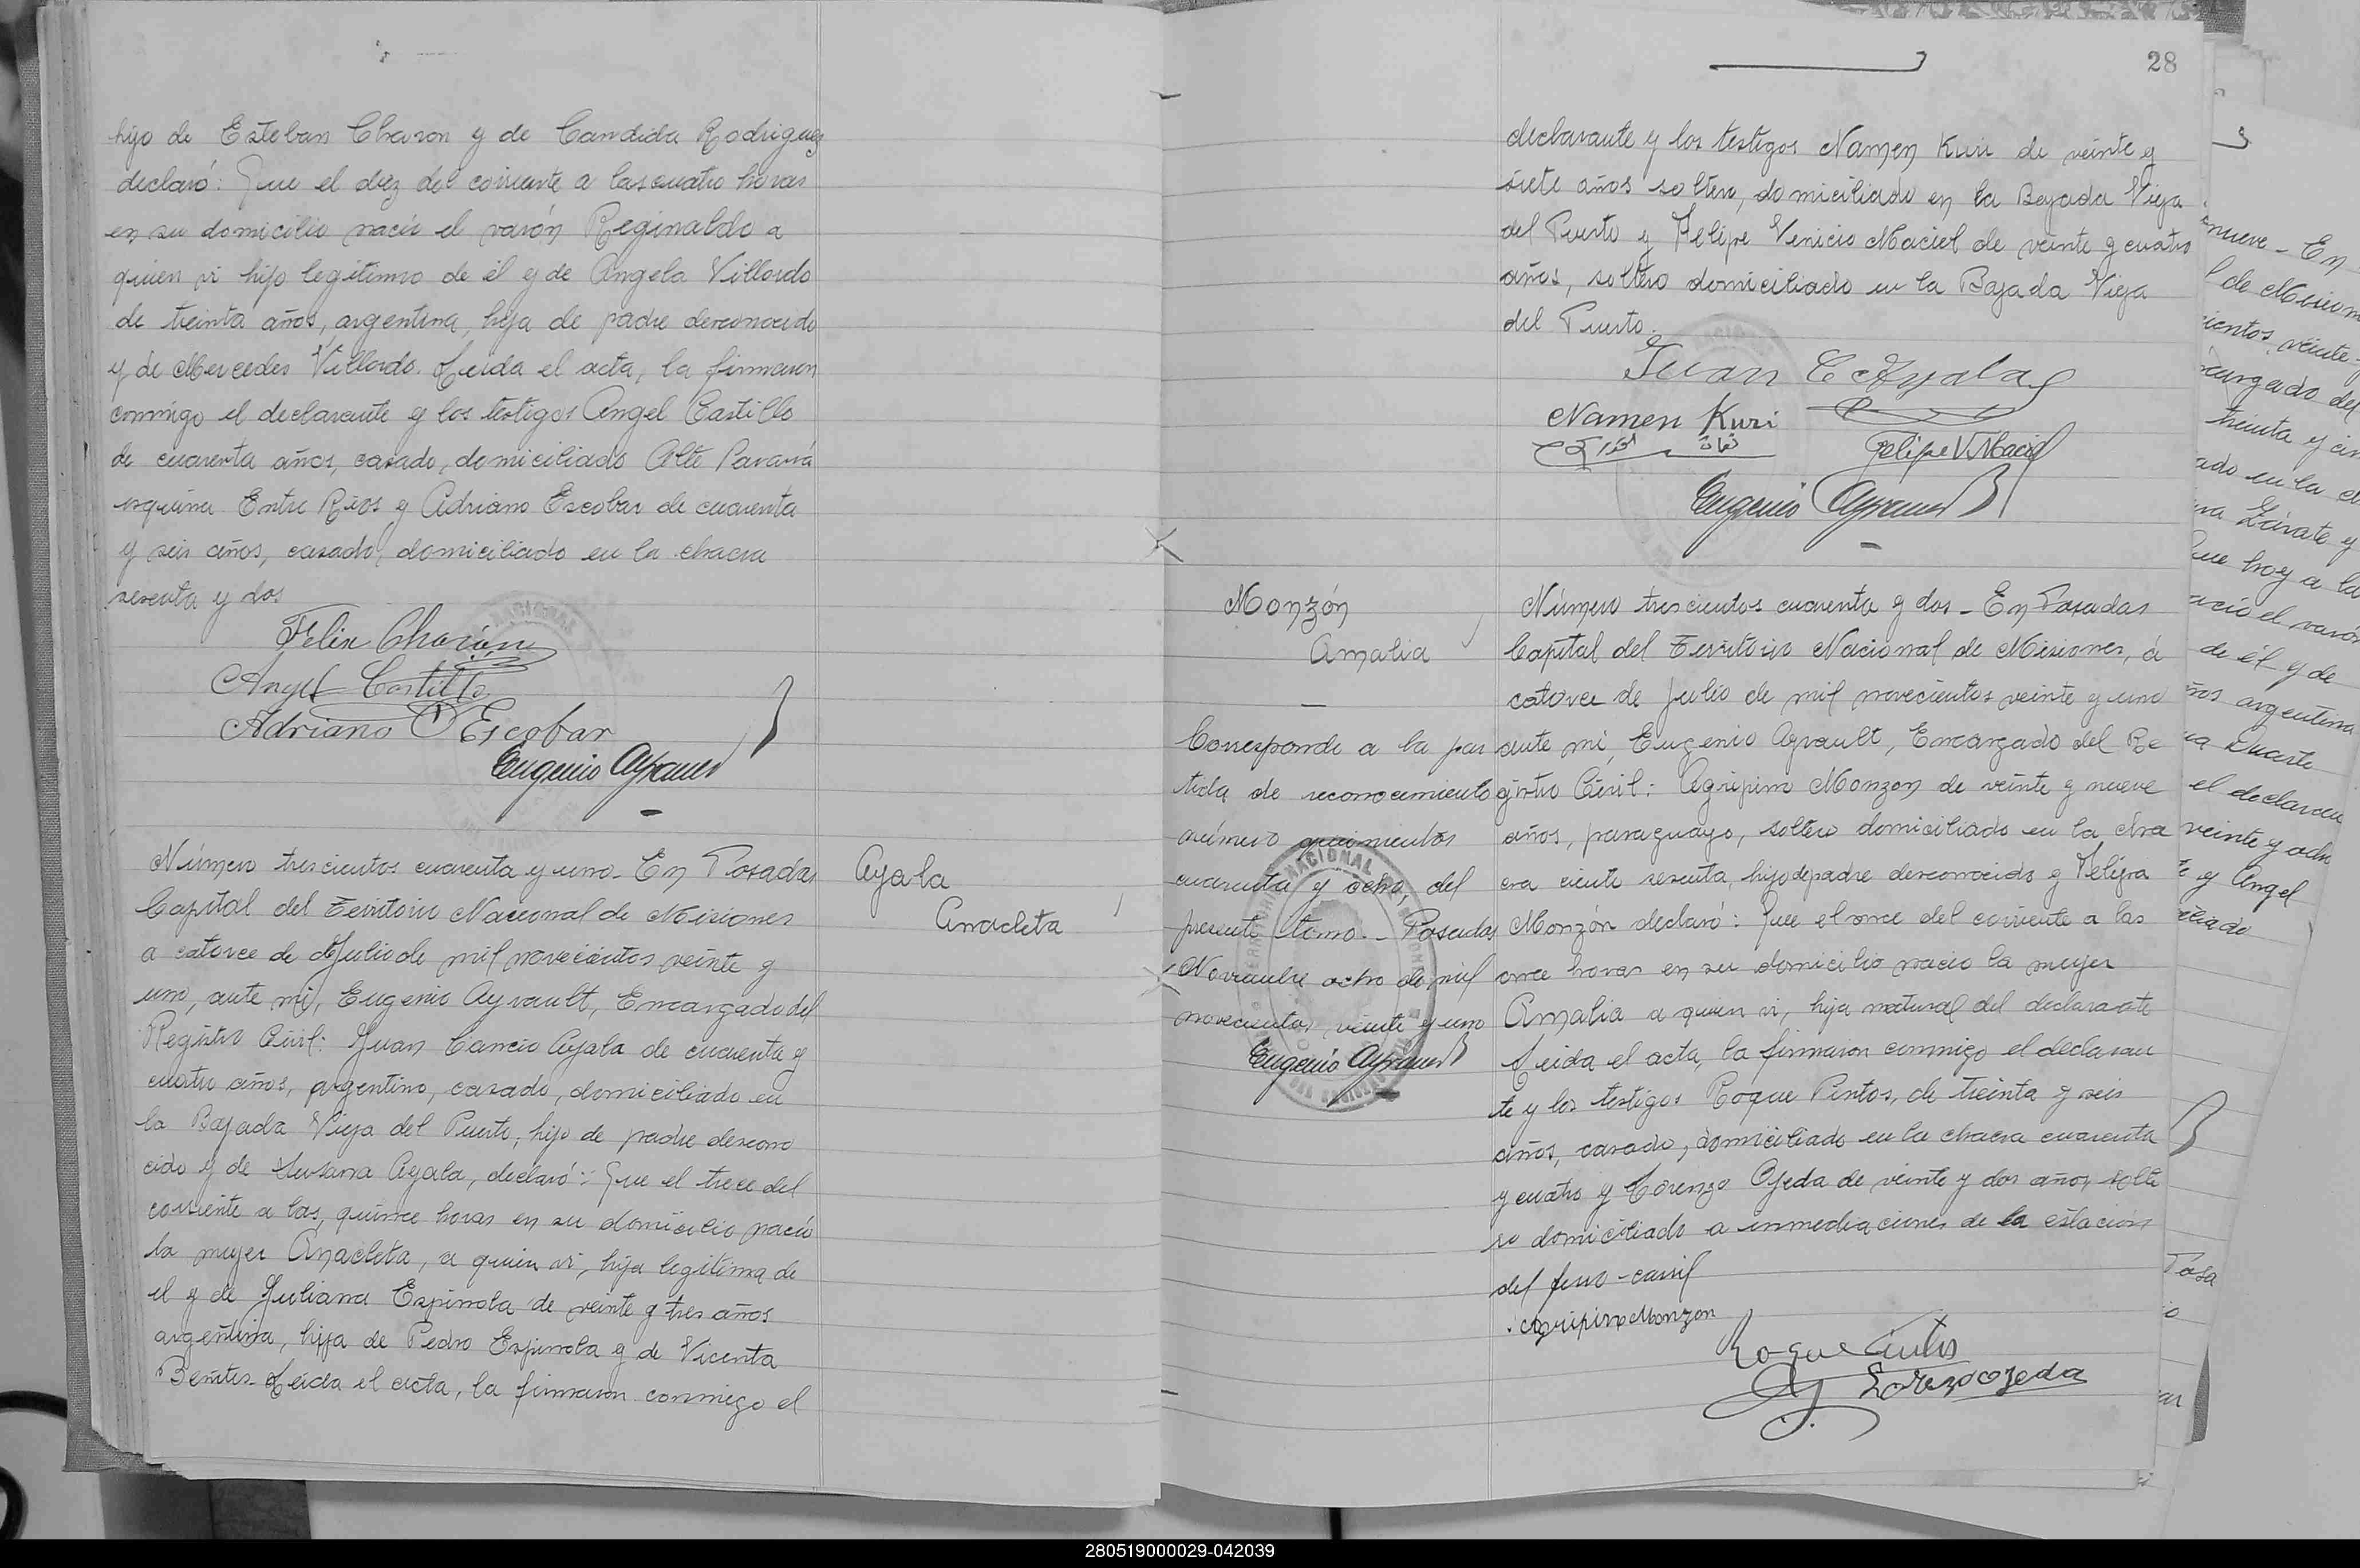 hijo de Esteban Charon y de Candida Rodriguez
declaró: Que el diez del corriente a las cuatro horas
en su domicilio nació el varón Reginaldo a
quien vi hijo legitimo de él y de Angela Villordo
de treinta años, argentina, hija de padre desconocido
y de Mercedes Villordo. Leida el acta, la firmaron
conmigo el declarante y los testigos Angel Castillo
de cuarenta años, casado, domiciliado Alto Paraná
esquina Entre Rios y Adriano Escobar de cuarenta
y seis años, casado, domiciliado en la chacra
sesenta y dos
Felix Charón
Angel Castillo
Adriano Escobar
Eugenio Ayrault
Número trescientos cuarenta y uno - En Posadas
Capital del Territorio Nacional de Misiones
a catorce de Julio de mil novecientos veinte y
uno, ante mi, Eugenio Ayrault, Encargado del
Registro Civil: Juan Cancio Ayala de cuarenta y
cuatro años, argentino, casado, domiciliado en
la Bajada Vieja del Puerto, hijo de padre descono
cido y de Susana Ayala, declaró: Que el trece del
corriente a las quince horas en su domicilio nació
la mujer Anacleta, a quien vi, hija legitima de
el y de Juliana Espinola de veinte y tres años
argentina, hija de Pedro Espinola y de Vicenta
Benites - Leida el acta, la firmaron conmigo el
Ayala
Anacleta
28
declarante y los testigos Namen Kuri de veinte y
siete años soltero, domiciliado en la Bajada Vieja
del Puerto y Felipe Venicio Maciel de veinte y cuatro
años, soltero domiciliado en la Bajada Vieja
del Puerto.
Juan C Ayala
Namen Kuri
Felipe V. Maciel
Eugenio Ayrault
Monzón
Amalia
Corresponde a la par
tida de reconocimiento
número quinientos
cuarenta y ocho del
presente tomo. - Posadas
Noviembre ocho de mil
novecientos veinte y uno
Eugenio Ayrault
Número trescientos cuarenta y dos - En Posadas
Capital del Territorio Nacional de Misiones, á
catorce de Julio de mil novecientos veinte y uno
ante mi, Eugenio Ayrault, Encargado del Re
gistro Civil: Agripino Monzon de veinte y nueve
años, paraguayo, soltero domiciliado en la cha
cra ciento sesenta, hijo de padre desconocido y Felipa
Monzón declaró: Que el once del corriente a las
once horas en su domicilio nacio la mujer
Amalia a quien vi, hija natural del declarante
Leida el acta, la firmaron conmigo el declaran
te y los testigos Roque Pintos, de treinta y seis
años, casado, domiciliado en la chacra cuarenta
y cuatro y Lorenzo Ojeda de veinte y dos años, solte
ro domiciliado a inmediaciones de la estación
del ferro-carril
Agripino Monzon
Roque Pintos
Lorenzo Ojeda
nueve - En
de Mision
cientos veinte
cargado del
treinta y cin
ado en la
Zárate y
Que hoy a la
nació el varón
de él y de
años argentina
Duarte
el declaran
veinte y och
y Angel
ciliado
Posa
280519000029-042039